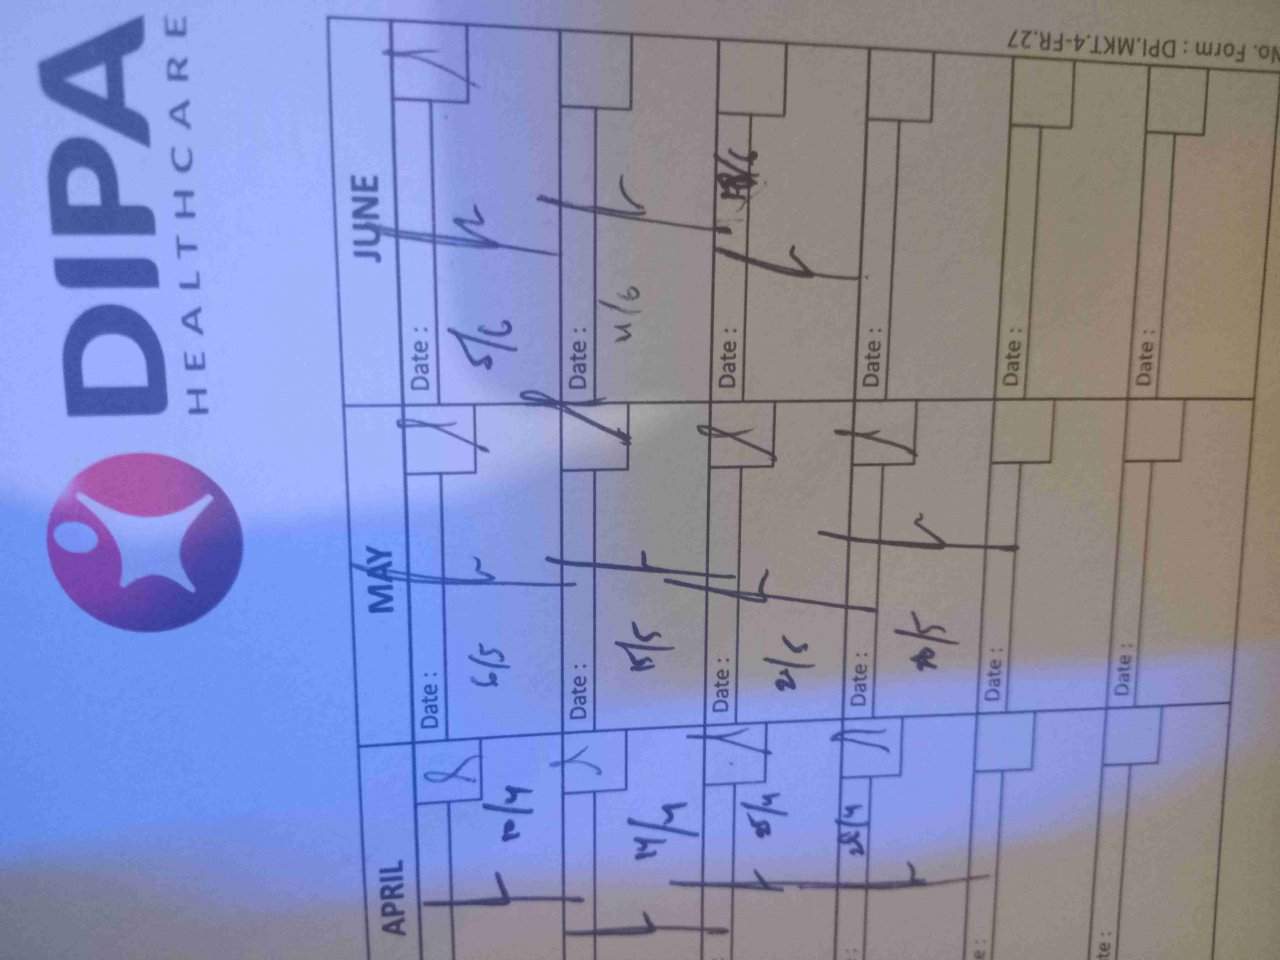 DIPA
HEALTHCARE
APRIL MAY JUNE
Date : Date :
10/4 6/5 5/6
Date : Date :
14/4 15/5 11/6
Date : Date :
25/4 21/5 18/6
Date : Date :
28/4
Date : Date :
Date : Date :
No. Form : DPI.MKT.4-FR.27